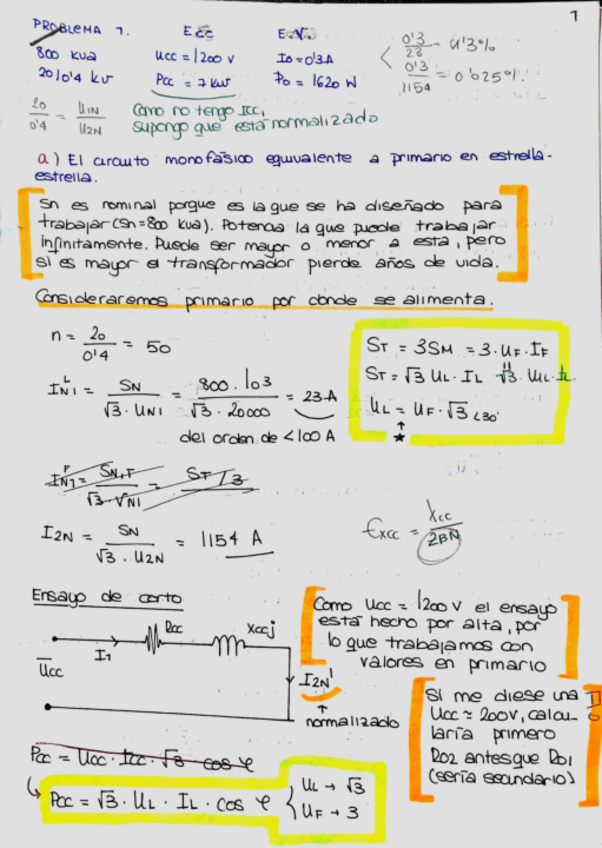 1
PROBLEMA 7. Ecc E.V.
800 kva Ucc = 1200 v I0 = 0'3A
20/0'4 kv Pcc = 7 kw P0 = 1620 W
0'3/23 = 1'3%
0'3/1154 = 0'025%
20/0'4 = U1N/U2N
Como no tengo Icc,
supongo que está normalizado
a) El circuito monofásico equivalente a primario en estrella-
estrella.
Sn es nominal porque es la que se ha diseñado para
trabajar (Sn = 800 kva). Potencia la que puede trabajar
infinitamente. Puede ser mayor o menor a esta, pero
si es mayor el transformador pierde años de vida.
Consideraremos primario por donde se alimenta.
n = 20/0'4 = 50
IN1 L = SN/√3 · UN1 = 800 · 103/√3 · 20000 = 23 A
del orden de < 100 A
ST = 3SM = 3 · UF · IF
ST = √3 UL · IL
UL = UF · √3 <30°
IN1 F = SN,F/√3 · VN1 = ST/3
I2N = SN/√3 · U2N = 1154 A
Excc = Xcc/ZBN
Ensayo de corto
Rcc Xccj
Ucc I1 I2N'
normalizado
Como Ucc = 1200 v el ensayo
está hecho por alta, por
lo que trabajamos con
valores en primario
Si me diese una
Ucc ≈ 200v, calcu-
laría primero
R02 antes que R01
(sería secundario)
Pcc = Ucc · Icc · √3 cos φ
Pcc = √3 · UL · IL · cos φ { UL → √3
UF → 3